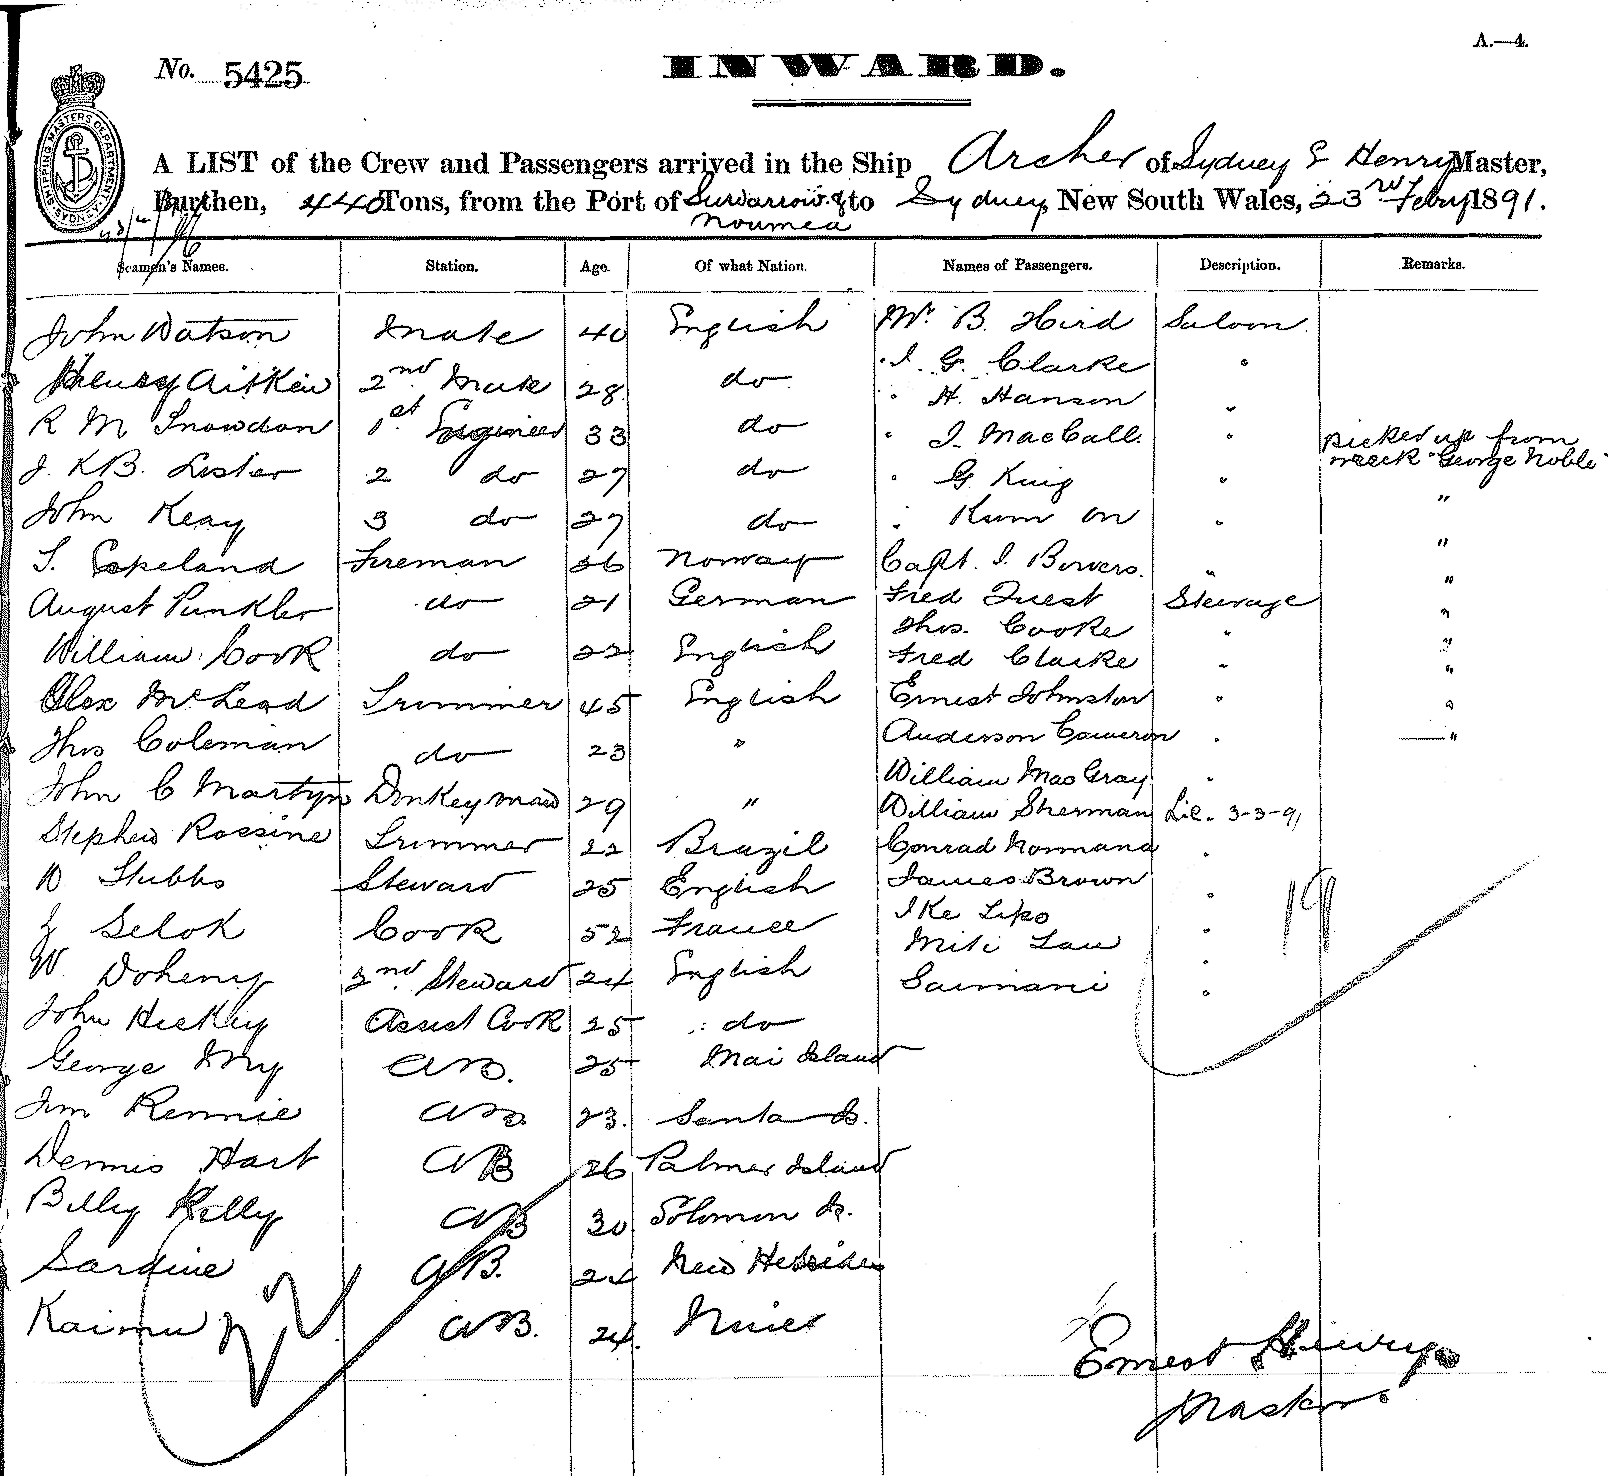 A.—4.
No. 5425
INWARD.
SHIPPING MASTERS DEPARTMENT SYDNEY
A LIST of the Crew and Passengers arrived in the Ship Archer of Sydney E Henry Master,
Burthen, 440 Tons, from the Port of & Noumea to Sydney, New South Wales, 23rd Febry 1891.
Seamen's Names. Station. Age. Of what Nation. Names of Passengers. Description. Remarks.
John Watson Mate 40 English Mr. B. Hird Saloon
" J. G. Clarke "
Henry Aitken 2nd Mate 28 do " H. Hanson "
R M Snowdon 1st Engineer 33 do " J. MacCall. " picked up from
wreck "George Noble"
J. K B. Lister 2 do 27 do " G. King " "
John Keay 3 do 27 do " Kum On " "
S. Copeland Fireman 26 Norway Capt. J. Bowers. " "
August Punkler do 21 German Fred Guest Steerage "
Thos. Cooke " "
William Cook do 22 English Fred Clarke " "
Alex McLeod Trimmer 45 English Ernest Johnston " "
Thos Coleman do 23 " Anderson Cameron " "
William MacGray "
John C Martyn Donkeyman 29 " William Sherman Lic. 3-3-91
Stephen Rossine Trimmer 22 Brazil Conrad Normand "
W Stubbs Steward 25 English James Brown "
J Selok Cook 52 France Ike Lipo "
Miti Lau "
W Doheny 2nd Steward 24 English Saimani "
19
John Hickey Assist Cook 25 do
George Ivy AB. 25 Mai Island
Jim Rennie AB. 23. Santa Is.
Dennis Hart AB 26 Palmer Island
Billy Kelly AB 30 Solomon Is.
Sardine AB. 24 New Hebrides
Kaimu AB. 24.
Ernest Henry
Master